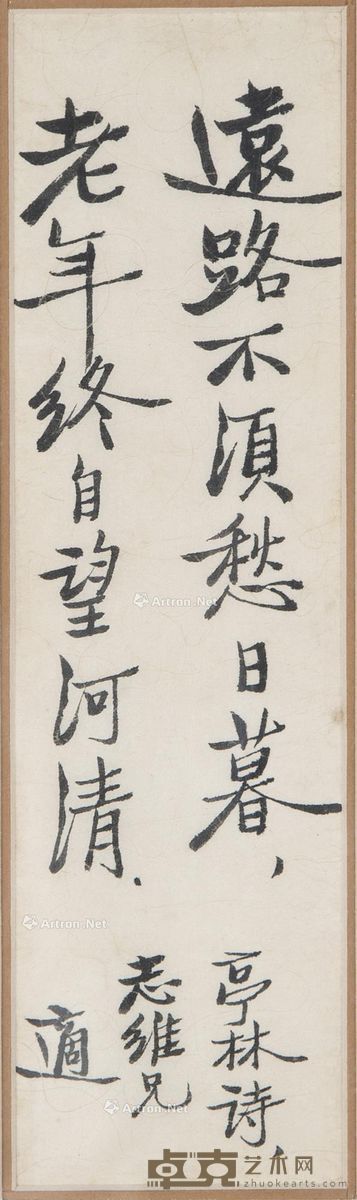 遠路不須愁日暮，
老年終自望河清．
亭林诗，
志維兄
適
Artron.Net
Artron.Net
Artron.Net
卓克艺术网
zhuokearts.com